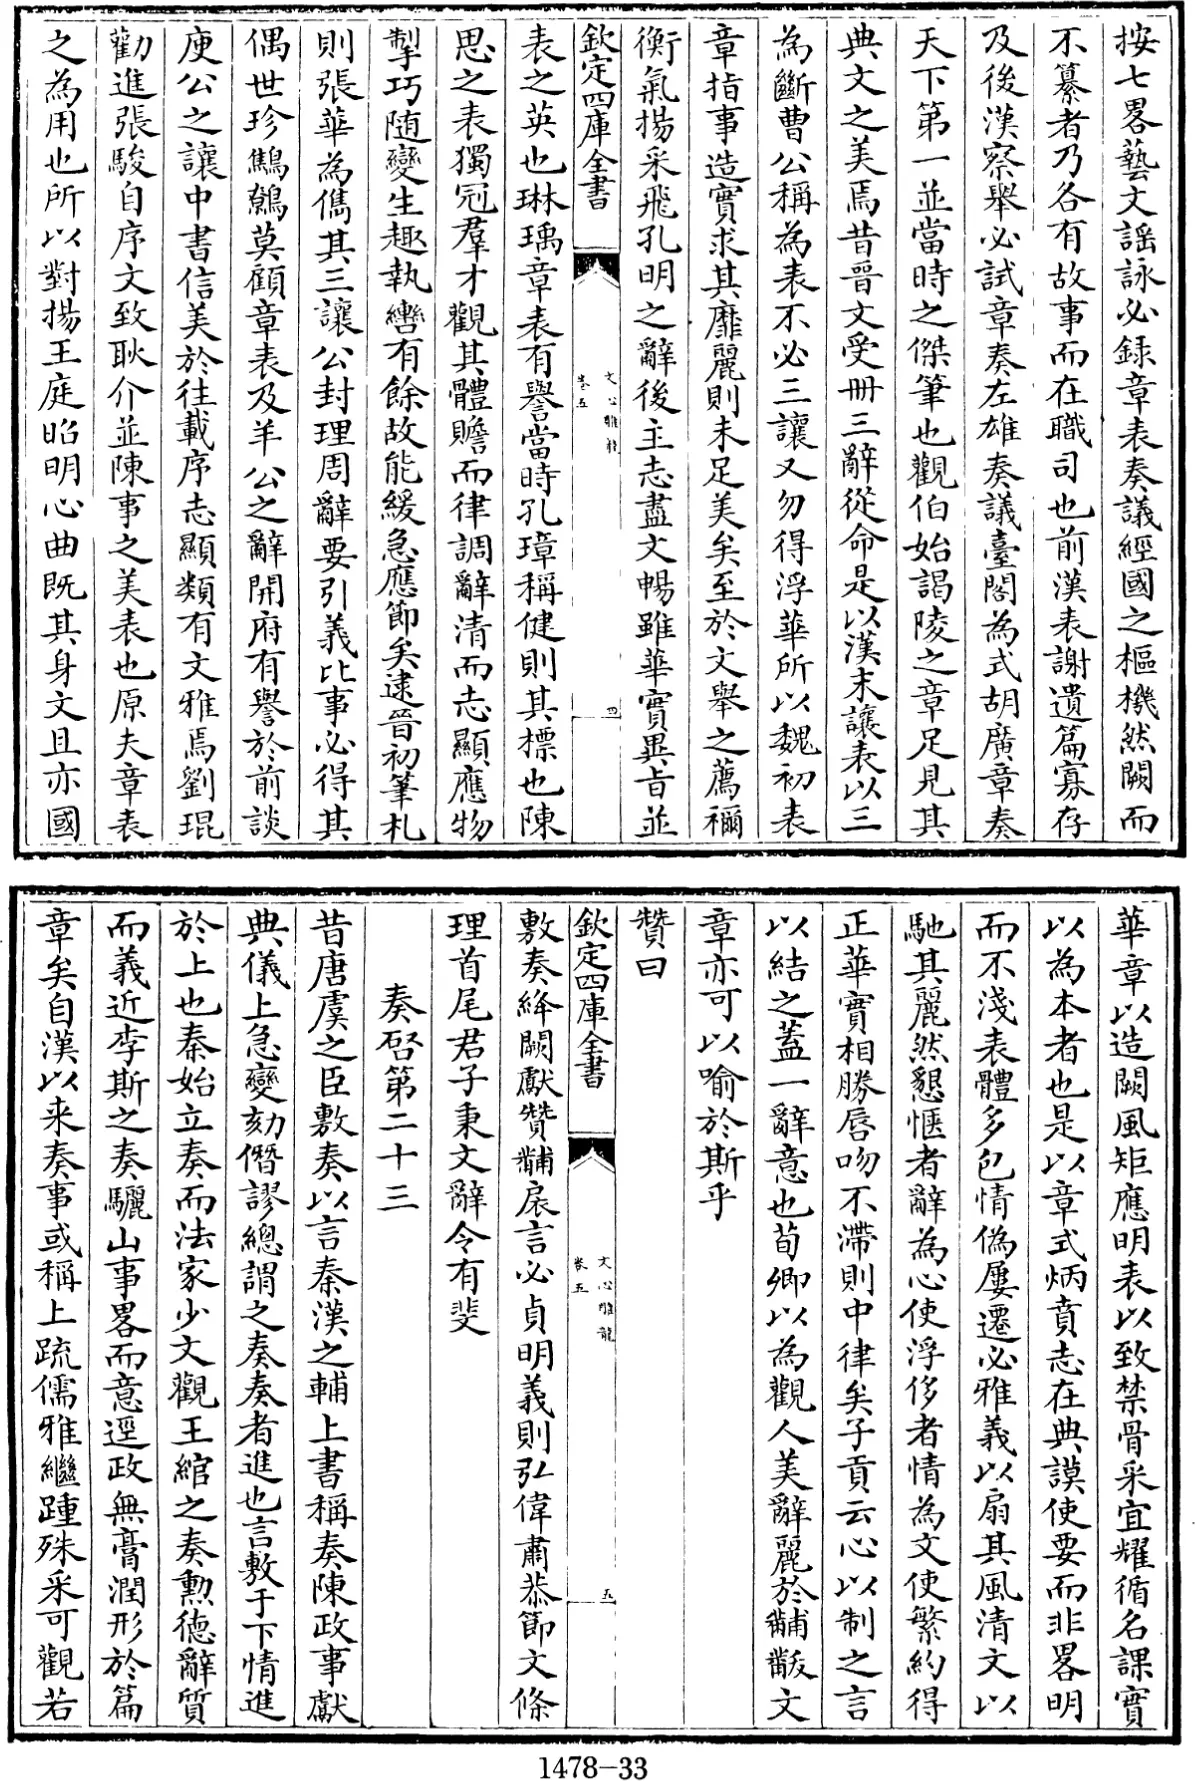 按七畧藝文謡詠必録章表奏議經國之樞機然闕而
不纂者乃各有故事而在職司也前漢表謝遺篇寡存
及後漢察舉必試章奏左雄奏議臺閣為式胡廣章奏
天下第一並當時之傑筆也觀伯始謁陵之章足見其
典文之美焉昔晉文受冊三辭從命是以漢末讓表以三
為斷曹公稱為表不必三讓又勿得浮華所以魏初表
章指事造實求其靡麗則未足美矣至於文舉之薦禰
衡氣揚采飛孔明之辭後主志盡文暢雖華實異旨並
欽定四庫全書
文心雕龍
卷五
四
表之英也琳瑀章表有譽當時孔璋稱健則其標也陳
思之表獨冠羣才觀其體贍而律調辭清而志顯應物
掣巧随變生趣執轡有餘故能緩急應節矣逮晉初筆札
則張華為儁其三讓公封理周辭要引義比事必得其
偶世珍鷦鷯莫顧章表及羊公之辭開府有譽於前談
庾公之讓中書信美於往載序志顯類有文雅焉劉琨
勸進張駿自序文致耿介並陳事之美表也原夫章表
之為用也所以對揚王庭昭明心曲既其身文且亦國
華章以造闕風矩應明表以致禁骨采宜耀循名課實
以為本者也是以章式炳賁志在典謨使要而非畧明
而不淺表體多包情偽屢遷必雅義以扇其風清文以
馳其麗然懇愜者辭為心使浮侈者情為文使繁約得
正華實相勝唇吻不滯則中律矣子貢云心以制之言
以結之蓋一辭意也荀卿以為觀人美辭麗於黼黻文
章亦可以喻於斯乎
贊曰
欽定四庫全書
文心雕龍
卷五
五
敷奏絳闕獻贊黼扆言必貞明義則弘偉肅恭節文條
理首尾君子秉文辭令有斐
奏啓第二十三
昔唐虞之臣敷奏以言秦漢之輔上書稱奏陳政事獻
典儀上急變劾僭謬總謂之奏奏者進也言敷于下情進
於上也秦始立奏而法家少文觀王綰之奏勲德辭質
而義近李斯之奏驪山事畧而意逕政無膏潤形於篇
章矣自漢以来奏事或稱上疏儒雅繼踵殊采可觀若
1478-33